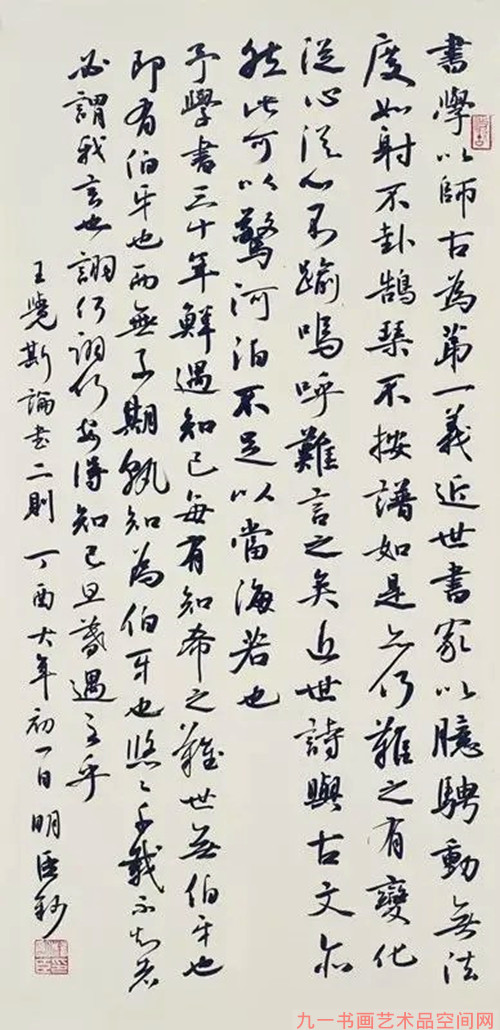 書學以師古為第一義近世書家以臆騁動無法
度如射不卦鵠琹不按譜如是亦仍難之有變化
從心從心不踰嗚呼難言之矣近世詩與古文亦
然此可以驚河泊不足以當海若也
予學書三十年鮮遇知己每有知希之難世無伯牙也
即有伯牙也而無子期孰知為伯牙也悠々千載不知者
必謂我言也詡仍詡仍安得知己旦暮遇之乎
王覺斯論書二則丁酉大年初一日明
九一书画艺术品空间网